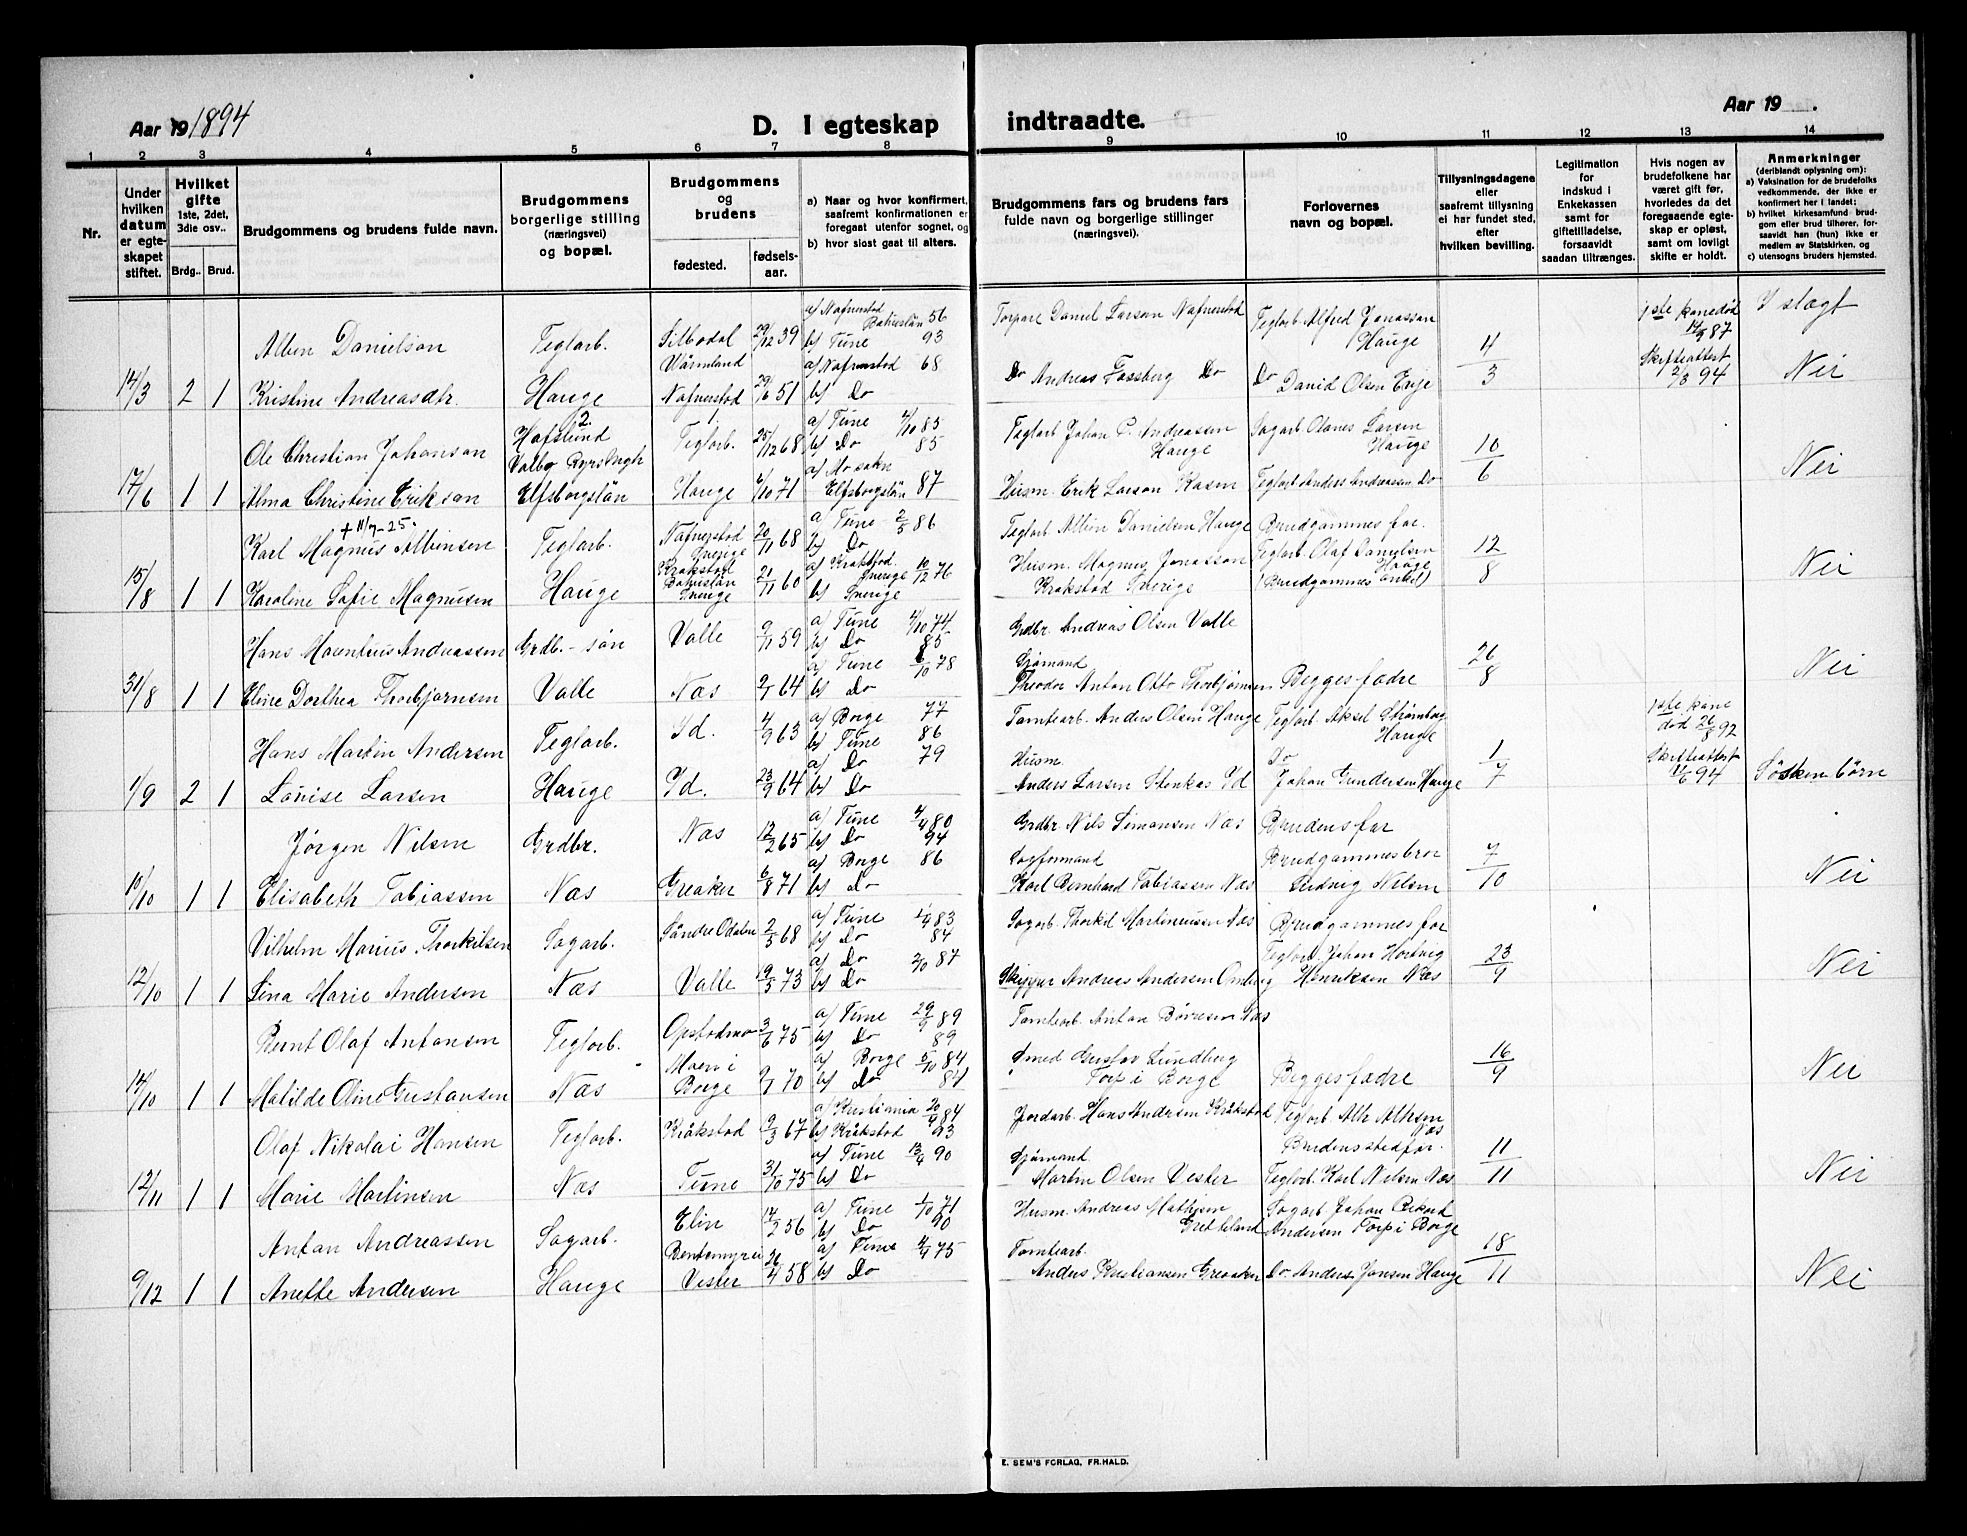 Aar 19 1894
D. I egteskap indtraadte.
Aar 19 .
1 2 3 4 5 6 7 8 9 10 11 12 13 14
Nr.
Under hvilken datum er egteskapet stiftet.
Hvilket gifte 1ste, 2det, 3die osv..
Brdg.. Brud.
Brudgommens og brudens fulde navn.
Brudgommens borgerlige stilling (næringsvei) og bopæl.
Brudgommens og brudens
fødested.
fødsels-aar.
a) Naar og hvor konfirmert, saafremt konfirmationen er foregaat utenfor sognet, og
b) hvor sidst gaat til alters.
Brudgommens fars og brudens fars fulde navn og borgerlige stillinger (næringsvei).
Forlovernes navn og bopæl.
Tillysningsdagene eller saafremt tillysning ei har fundet sted, efter hvilken bevilling.
Legitimation for indskud i Enkekassen samt for giftetilladelse, forsaavidt saadan tiltrænges.
Hvis nogen av brudefolkene har været gift før, hvorledes da det foregaaende egteskap er opløst, samt om lovligt skifte er holdt.
Anmerkninger (deriblandt oplysning om):
a) Vaksination for de brudefolks vedkommende, der ikke er konfirmert her i landet;
b) hvilket kirkesamfund brudgom eller brud tilhører, forsaavidt han (hun) ikke er medlem av Statskirken, og
c) utensogns bruders hjemsted.
Albin Danielson Teglarb. Silbodal Värmland 29/12 39 a) Nafverstod Bohuslän 56 b) Tune 93 Torpare Daniel Larson Nafverstod Teglarb. Alfred Jonasson Hauge 4/3 1ste kone død 87 I slægt
14/3 2 1 Kristine Andreasdtr. Hauge Nafverstod 29/6 51 a) Nafverstod 68 b) Do Do Andreas Fossberg Do Do David Olsen Evje Skifteattest 2/3 94 Nei
Ole Christian Johanson 2. Hafslund 1. Teglarb. 25/12 68 a) Tune 4/10 85 b) Do 85 Teglarb Johan P. Andreassen Hauge Sagarb. Olanes Larsen Hauge 10/6
17/6 1 1 Alma Christine Erikson Elfsborgslän Hauge 4/10 71 a) Mo sokn Elfsborgslän 87 Husm. Erik Larson Teglarb Anders Andreassen Do Nei
+ 11/7-25.
Karl Magnus Albinsen Teglarb. Nafverstod Sverige 20/11 68 a) Tune 2/5 86 b) Do Teglarb Albin Danielsen Hauge Brudgommens far. 12/8
15/8 1 1 Karoline Sofie Magnusen Hauge Krokstad Bohuslän Sverige 21/11 60 a) Krokstad Sverige 10/12 76 b) Sverige Husm. Magnus Jonasson Krokstad Sverige Teglarb. Olaf Danielsen Hauge (Brudgommens onkel) Nei
Hans Marentius Andreassen Grdb.-søn Valle 9/11 59 a) Tune 4/10 74 b) Do 85 Grdbr. Andreas Olsen Valle
31/8 1 1 Eline Dorthea Thorbjørnsen Valle Næs 2/1 64 a) Tune 6/10 78 b) Do Sjømand Theodor Anton Otto Thorbjørnsen Begges fædre 26/8 Nei
Hans Martin Andersen Teglarb. Id. 4/9 63 a) Borge 77 b) Tune 86 Tomtearb. Anders Olsen Hauge Teglarb. Aksel Strømberg Hauge 1ste kone død 26/8 92
1/9 2 1 Louise Larsen Hauge Id. 23/9 64 a) Do 79 b) Do Husm. Anders Larsen Stenkas Id Do Johan Gundersen Hauge 1/7 Skifteattest 94 Søskenbørn
Jørgen Nilsen Grdbr. Næs 12/2 65 a) Tune 4/4 80 b) Do 94 Grdbr Nils Simonsen Næs Brudens far
10/10 1 1 Elisabeth Tobiassen Næs Greaker 6/8 71 a) Borge 86 b) Do Sagformand Karl Bernhard Tobiassen Næs Brudgommens bror Ludvig Nilsen 7/10 Nei
Vilhelm Marius Thorkilsen Sagarb. Søndre Odalen 2/5 68 a) Tune 83 b) Do 84 Sagarb. Thorkil Martiniussen Næs Brudgommens far
12/10 1 1 Lina Marie Andersen Næs Valle 19/5 73 a) Do 2/10 87 b) Do Skipper Andreas Andersen Teglarb. Johan Hartvig Henriksen Næs 23/9 Nei
Bernt Olaf Antonsen Teglarb. Opstadmoen 3/6 75 a) Tune 29/9 89 b) Do 89 Tomtearb. Anton Børresen Næs
14/10 1 1 Matilde Oline Gustavsen Næs Moen i Borge 9/1 70 a) Borge 5/10 84 b) Do 84 Smed Gustav Lundberg Torp i Borge Begges fædre 16/9 Nei
Olaf Nikolai Hansen Teglarb. Kråkstad 9/3 67 a) Kristiania 20/9 84 b) Kråkstad 93 Jordarb. Hans Andersen Kråkstad Teglarb. Næs Brudens stedfar. 11/11
12/11 1 1 Marie Martinsen Næs Tune 31/10 75 a) Tune 13/4 90 b) Do Sjømand Martin Olsen Vester Teglarb. Karl Nilsen Næs Nei
Anton Andreassen Sagarb. Elin 14/2 56 a) Tune 1/10 71 b) Do 90 Husm. Andreas Mathisen Sagarb Johan Rikard Andersen Torp i Borge 18/11
9/12 1 1 Anette Andersen Hauge Vester 26/4 58 a) Tune 75 b) Do Tomtearb. Anders Kristiansen Greaaker Do Anders Jensen Hauge Nei
E. SEM'S FORLAG, FR.HALD.